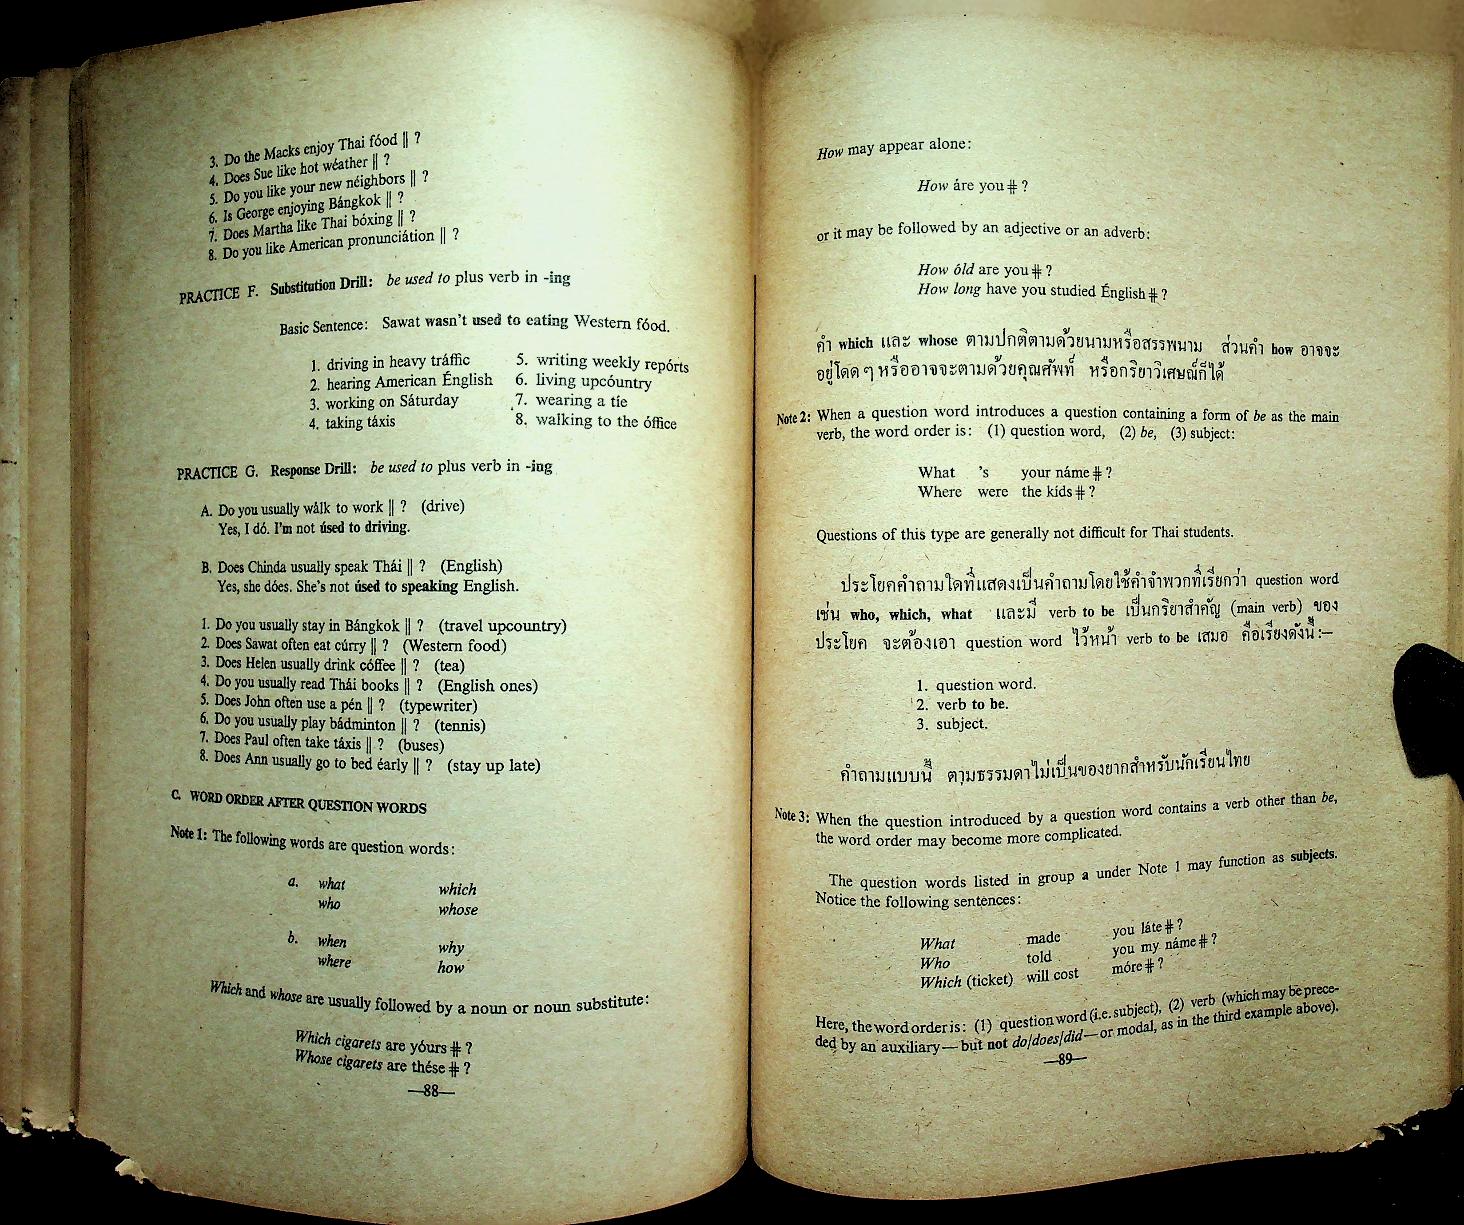 3. Do the Macks enjoy Thai fóod || ?
4. Does Sue like hot wéather || ?
5. Do you like your new néighbors || ?
6. Is George enjoying Bángkok || ?
7. Does Martha like Thai bóxing || ?
8. Do you like American pronunciátion || ?
PRACTICE F. Substitution Drill: be used to plus verb in -ing
Basic Sentence: Sawat wasn't used to eating Western fóod.
1. driving in heavy tráffic
2. hearing American Énglish
3. working on Sáturday
4. taking táxis
5. writing weekly repórts
6. living upcóuntry
7. wearing a tíe
8. walking to the óffice
PRACTICE G. Response Drill: be used to plus verb in -ing
A. Do you usually wálk to work || ? (drive)
Yes, I dó. I'm not úsed to driving.
B. Does Chinda usually speak Thái || ? (English)
Yes, she dóes. She's not úsed to speaking English.
1. Do you usually stay in Bángkok || ? (travel upcountry)
2. Does Sawat often eat cúrry || ? (Western food)
3. Does Helen usually drink cóffee || ? (tea)
4. Do you usually read Thái books || ? (English ones)
5. Does John often use a pén || ? (typewriter)
6. Do you usually play bádminton || ? (tennis)
7. Does Paul often take táxis || ? (buses)
8. Does Ann usually go to bed éarly || ? (stay up late)
C. WORD ORDER AFTER QUESTION WORDS
Note 1: The following words are question words:
a. what which
who whose
b. when why
where how
Which and whose are usually followed by a noun or noun substitute:
Which cigarets are yóurs # ?
Whose cigarets are thése # ?
—88—
How may appear alone:
How áre you # ?
or it may be followed by an adjective or an adverb:
How óld are you # ?
How long have you studied Énglish # ?
คำ which และ whose ตามปกติตามด้วยนามหรือสรรพนาม ส่วนคำ how อาจจะ
อยู่โดด ๆ หรืออาจจะตามด้วยคุณศัพท์ หรือกริยาวิเศษณ์ก็ได้
Note 2: When a question word introduces a question containing a form of be as the main
verb, the word order is: (1) question word, (2) be, (3) subject:
What 's your náme # ?
Where were the kíds # ?
Questions of this type are generally not difficult for Thai students.
ประโยคคำถามใดที่แสดงเป็นคำถามโดยใช้คำจำพวกที่เรียกว่า question word
เช่น who, which, what และมี verb to be เป็นกริยาสำคัญ (main verb) ของ
ประโยค จะต้องเอา question word ไว้หน้า verb to be เสมอ คือเรียงดังนี้:—
1. question word.
2. verb to be.
3. subject.
คำถามแบบนี้ ตามธรรมดาไม่เป็นของยากสำหรับนักเรียนไทย
Note 3: When the question introduced by a question word contains a verb other than be,
the word order may become more complicated.
The question words listed in group a under Note 1 may function as subjects.
Notice the following sentences:
What made you láte # ?
Who told you my náme # ?
Which (ticket) will cost móre # ?
Here, the word order is: (1) question word (i.e. subject), (2) verb (which may be prece-
ded by an auxiliary—but not do/does/did—or modal, as in the third example above).
—89—